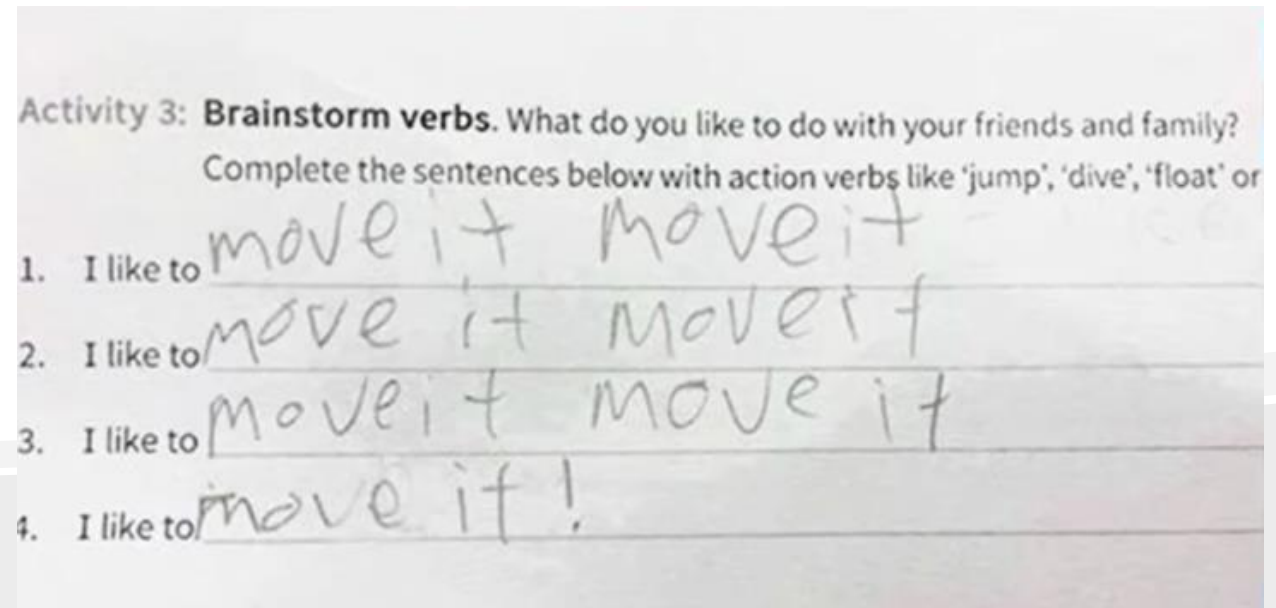 Activity 3: Brainstorm verbs. What do you like to do with your friends and family?
Complete the sentences below with action verbs like 'jump', 'dive', 'float' or
1. I like to move it move it
2. I like to move it move it
3. I like to move it move it
4. I like to move it!